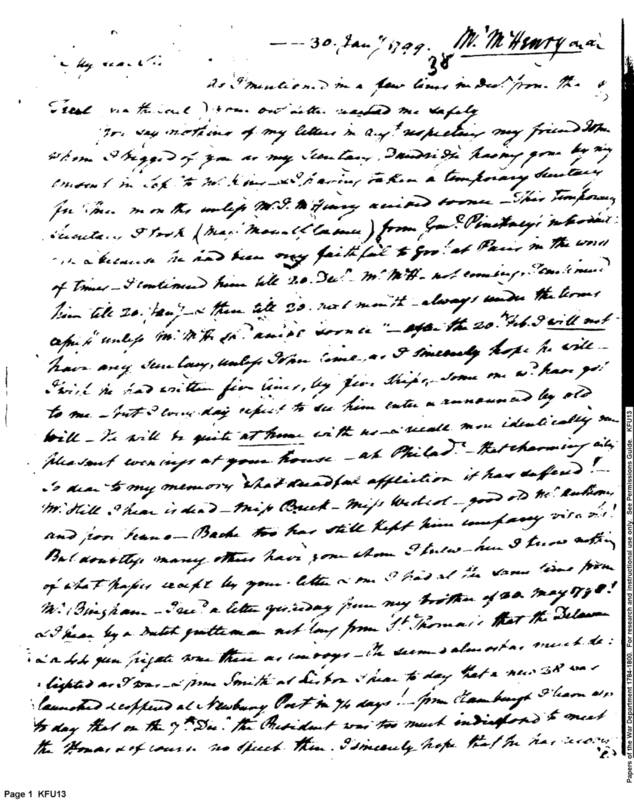 30 Jany 1799. Mr. McHenry
38
My dear Sir
As I mentioned in a few lines in Decr. from the
Texel via reached me safely
You say nothing of my letters in respecting my friend John
whom I begged of you as my Secretary. Dandridge having gone by my
consent in to Mr. King & I having taken a temporary Secretary
for three months unless Mr. J. McHenry arrived sooner - This temporary
Secretary I took (Major Mountflorence) from Genl. Pinckney's
& because he had been very faithful to Govt. at Paris in the worst
of times - I continued him till 20 Decr. Mr. McH - not coming, I continued
him till 20 Jany - & then till 20 next month - always under the terms
unless Mr. McH shd. arrive sooner" - after the 20th Feb. I will not
have any Secretary, unless John come, as I sincerely hope he will -
I wish he had written five lines, by five ships, some one wd. have got
to me - but I every day expect to see him enter announced by old
Will - He will be quite at home with us - & recall more identically
pleasant evenings at your house - ah Philada. - that charming city
so dear to my memory what dreadful affliction it has suffered! -
Mr. Hill I hear is dead - Miss Buck - Miss - good old Mr.
and poor - Bache too has still kept him company vis a vis!
But doubtless many others have gone whom I knew - here I know nothing
of what passes except by your letter & one I had at the same time from
Mr. Bingham - I recd. a letter yesterday from my brother of 20 May 1798!
& I hear by a Dutch gentleman not long from St. Thomas's that the Delaware
& a gun frigate were there as convoys - He seemed almost as much de-
lighted as I was - & from Smith at Lisbon I hear to day that a new 32 was
launched & coppered at Newbury Port in 74 days! - from Hamburgh I learn also
to day that on the 7th Decr. the President was too much indisposed to meet
the Houses & of course no speech then. I sincerely hope that he has
Page 1 KFU13
Papers of the War Department 1784-1800. For research and instructional use only. See Permissions Guide. KFU13